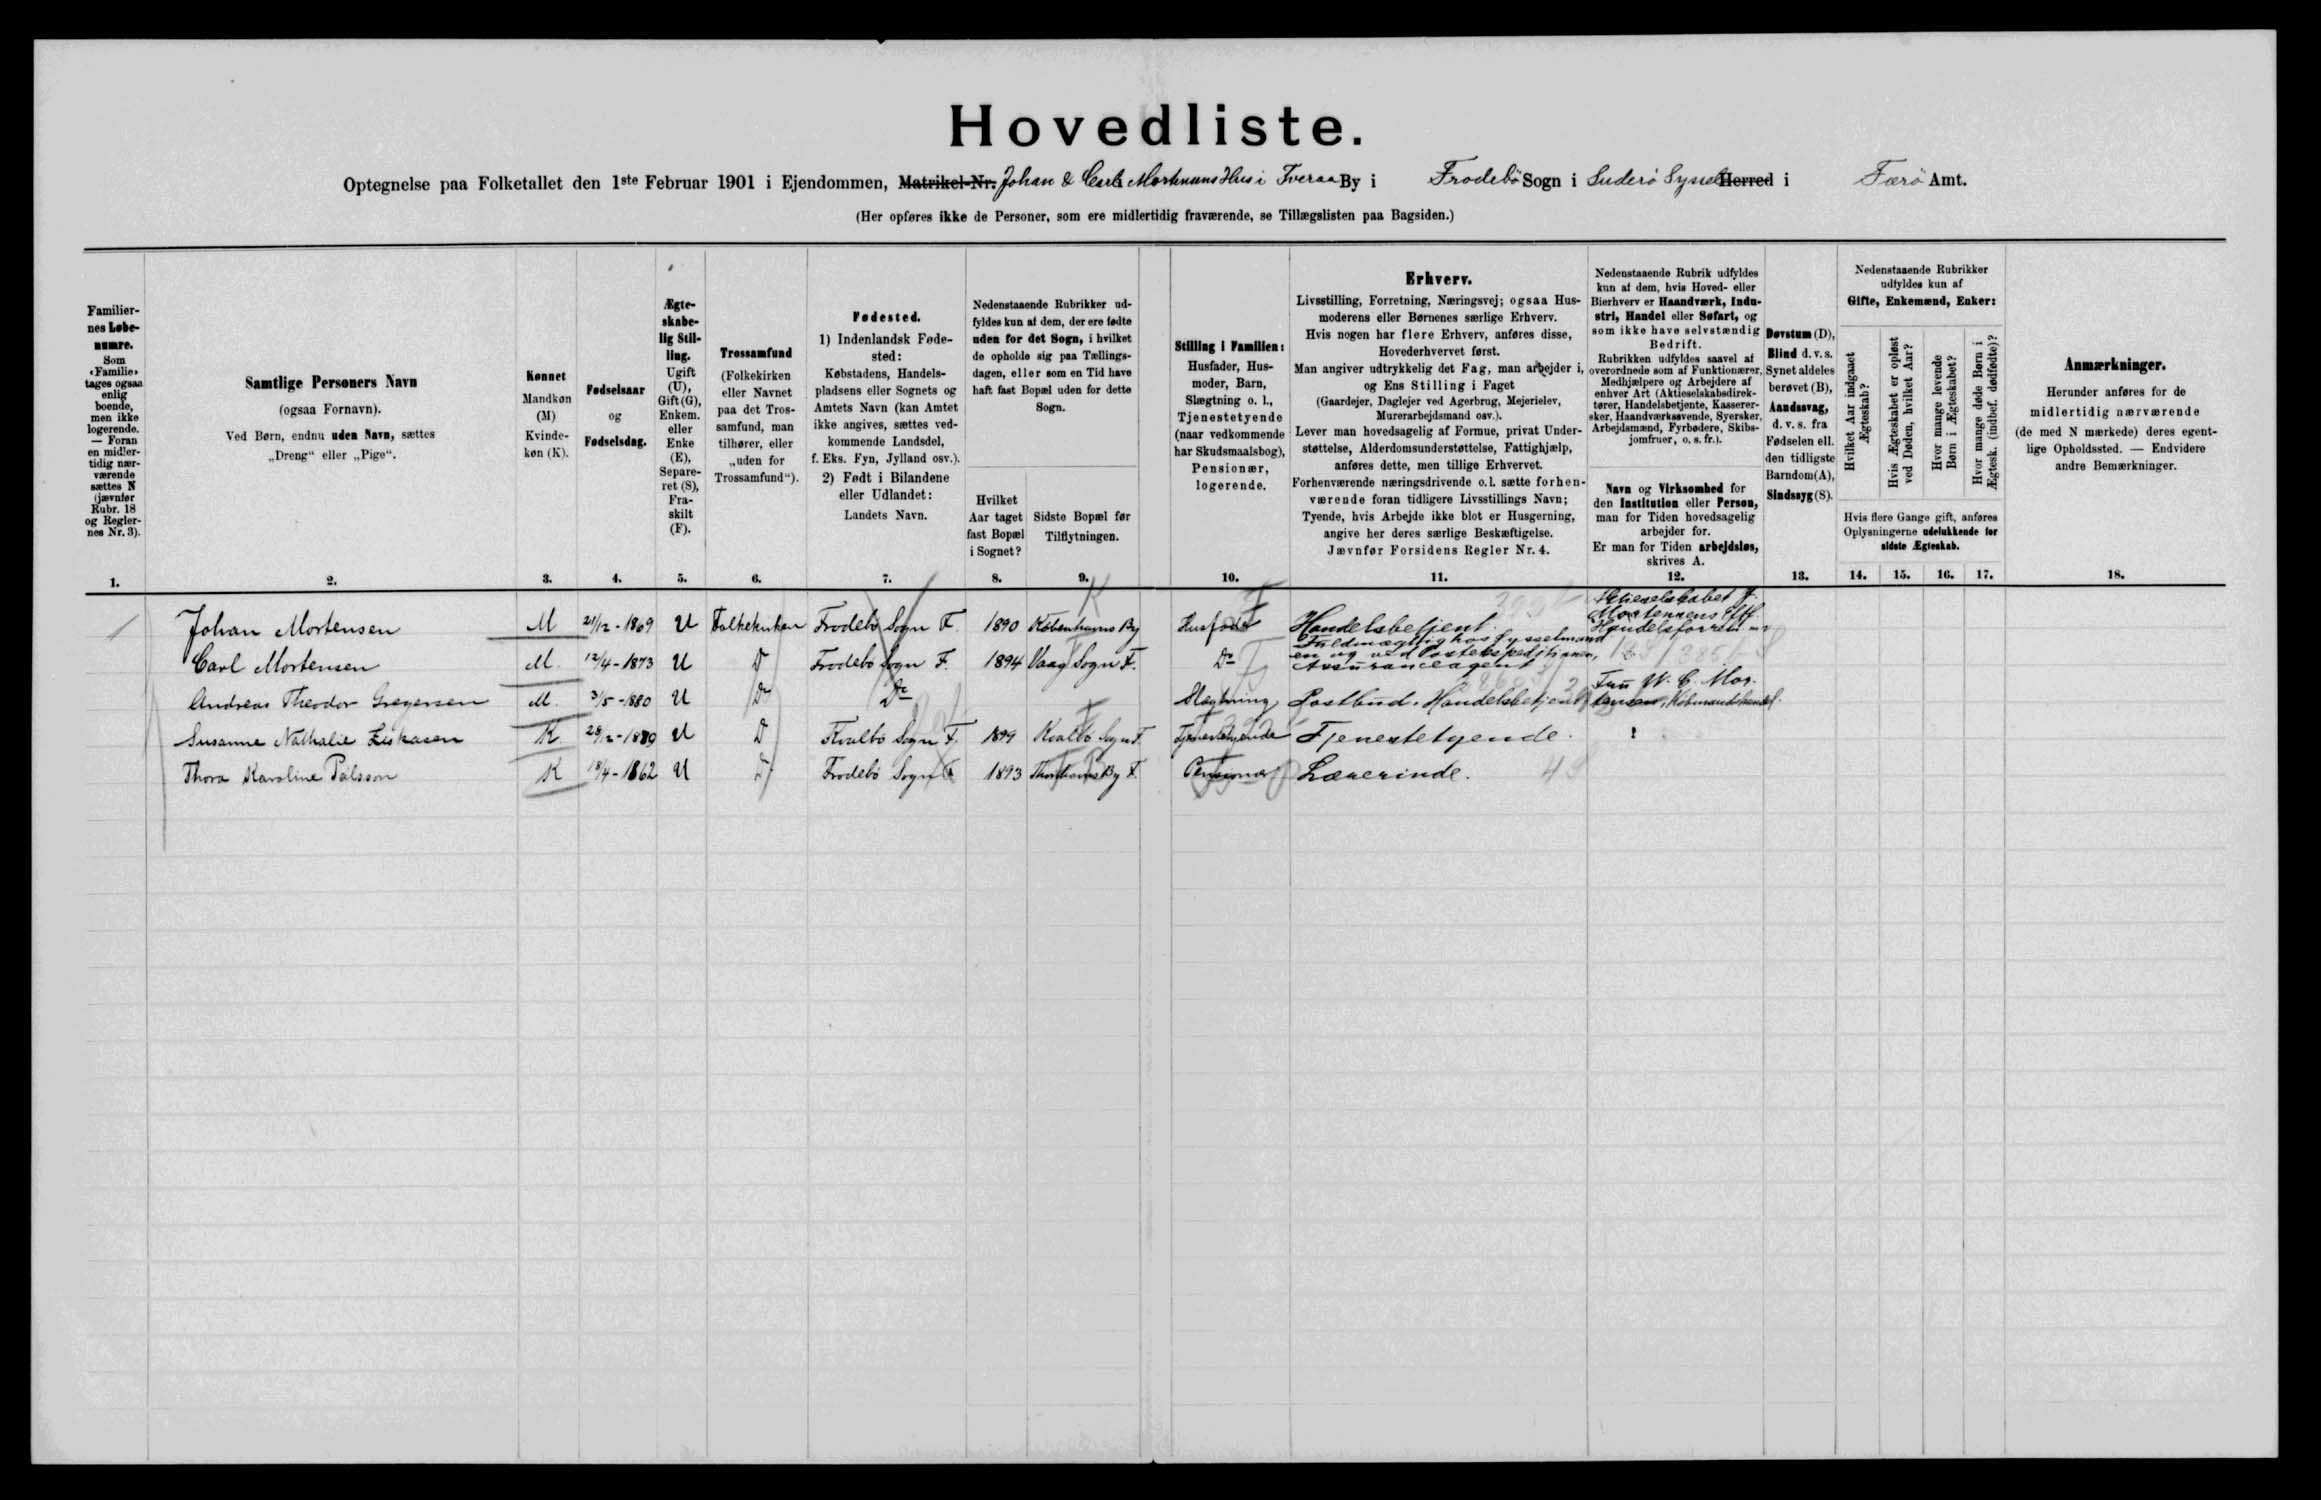 Hovedliste.
Optegnelse paa Folketallet den 1ste Februar 1901 i Ejendommen, Matrikel-Nr. Johan & Carl Mortensens Hus i Tveraa By i Frodebö Sogn i Suderö Syssel Herred i Færö Amt.
(Her opføres ikke de Personer, som ere midlertidig fraværende, se Tillægslisten paa Bagsiden.)
Familiernes Løbenumre.
Som «Familie» tages ogsaa enlig boende, men ikke logerende. — Foran en midlertidig nærværende sættes N (jævnfør Rubr. 18 og Reglernes Nr. 3).
1.
Samtlige Personers Navn
(ogsaa Fornavn).
Ved Børn, endnu uden Navn, sættes
„Dreng“ eller „Pige“.
2.
Kønnet
Mandkøn
(M)
Kvinde-
køn (K).
3.
Fødselsaar
og
Fødselsdag.
4.
Ægte-
skabe-
lig Stil-
ling.
Ugift
(U),
Gift (G),
Enkem.
eller
Enke
(E),
Separe-
ret (S),
Fra-
skilt
(F).
5.
Trossamfund
(Folkekirken
eller Navnet
paa det Tros-
samfund, man
tilhører, eller
„uden for
Trossamfund“).
6.
Fødested.
1) Indenlandsk Føde-
sted:
Købstadens, Handels-
pladsens eller Sognets og
Amtets Navn (kan Amtet
ikke angives, sættes ved-
kommende Landsdel,
f. Eks. Fyn, Jylland osv.).
2) Født i Bilandene
eller Udlandet:
Landets Navn.
7.
Nedenstaaende Rubrikker ud-
fyldes kun af dem, der ere fødte
uden for det Sogn, i hvilket
de opholde sig paa Tællings-
dagen, eller som en Tid have
haft fast Bopæl uden for dette
Sogn.
Hvilket
Aar taget
fast Bopæl
i Sognet?
8.
Sidste Bopæl før
Tilflytningen.
9.
Stilling i Familien:
Husfader, Hus-
moder, Barn,
Slægtning o. l.,
Tjenestetyende
(naar vedkommende
har Skudsmaalsbog),
Pensionær,
logerende.
10.
Erhverv.
Livsstilling, Forretning, Næringsvej; ogsaa Hus-
moderens eller Børnenes særlige Erhverv.
Hvis nogen har flere Erhverv, anføres disse,
Hovederhvervet først.
Man angiver udtrykkelig det Fag, man arbejder i,
og Ens Stilling i Faget
(Gaardejer, Daglejer ved Agerbrug, Mejerielev,
Murerarbejdsmand osv.).
Lever man hovedsagelig af Formue, privat Under-
støttelse, Alderdomsunderstøttelse, Fattighjælp,
anføres dette, men tillige Erhvervet.
Forhenværende næringsdrivende o. l. sætte forhen-
værende foran tidligere Livsstillings Navn;
Tyende, hvis Arbejde ikke blot er Husgerning,
angive her deres særlige Beskæftigelse.
Jævnfør Forsidens Regler Nr. 4.
11.
Nedenstaaende Rubrik udfyldes
kun af dem, hvis Hoved- eller
Bierhverv er Haandværk, Indu-
stri, Handel eller Søfart, og
som ikke have selvstændig
Bedrift.
Rubrikken udfyldes saavel af
overordnede som af Funktionærer,
Medhjælpere og Arbejdere af
enhver Art (Aktieselskabsdirek-
tører, Handelsbetjente, Kasserer-
sker, Haandværkssvende, Syersker,
Arbejdsmænd, Fyrbødere, Skibs-
jomfruer, o. s. fr.).
Navn og Virksomhed for
den Institution eller Person,
man for Tiden hovedsagelig
arbejder for.
Er man for Tiden arbejdsløs,
skrives A.
12.
Døvstum (D),
Blind d. v. s.
Synet aldeles
berøvet (B),
Aandssvag,
d. v. s. fra
Fødselen ell.
den tidligste
Barndom (A),
Sindssyg (S).
13.
Nedenstaaende Rubrikker
udfyldes kun af
Gifte, Enkemænd, Enker:
Hvilket Aar indgaaet Ægteskab?
Hvis Ægteskabet er opløst ved Døden, hvilket Aar?
Hvor mange levende Børn i Ægteskabet?
Hvor mange døde Børn i Ægtesk. (indbef. dødfødte)?
Hvis flere Gange gift, anføres
Oplysningerne udelukkende for
sidste Ægteskab.
14. 15. 16. 17.
Anmærkninger.
Herunder anføres for de
midlertidig nærværende
(de med N mærkede) deres egent-
lige Opholdssted. — Endvidere
andre Bemærkninger.
18.
Johan Mortensen M 21/12-1869 U Folkekirken Frodebö Sogn F. 1890 Københavns By Husfader Handelsbetjent. Aktieselskabet J. Mortensens Eftf. Handelsforretn
Carl Mortensen M. 12/4-1873 U Do Frodebö Sogn F. 1894 Vaag Sogn F. Do Fuldmægtig hos Sysselmanden og ved Postekspeditionen, Assuranceagent
Andreas Theodor Gregersen M. 3/5-1880 U Do Do Slægtning Postbud. Handelsbetjent Fru W. C. Mortensen, Købmandshandel.
Susanne Nathalie K 28/12-1880 U Do Kvalbö Sogn F. 1899 Kvalbö Sogn F. Tjenestetyende Tjenestetyende.
Thora Karoline Pálsson K 18/4-1862 U Do Frodebö Sogn F. 1893 Thorshavns By F. Pensionær Lærerinde.